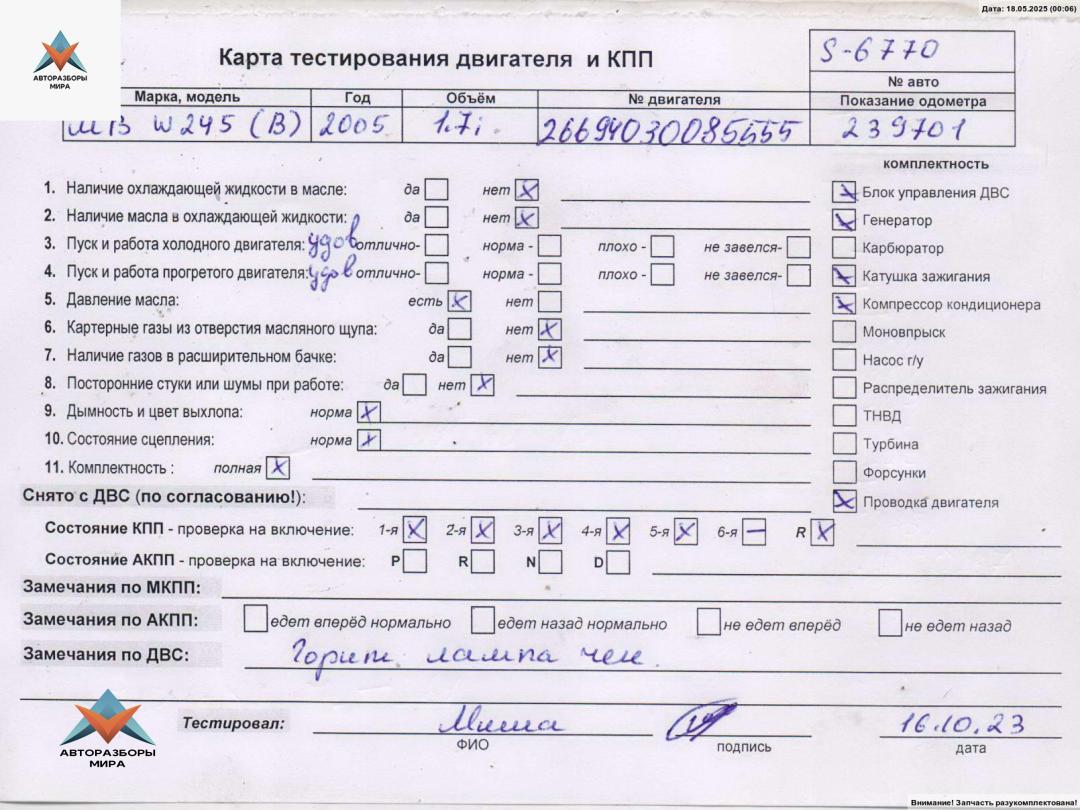 Дата: 18.05.2025 (00:06)
АВТОРАЗБОРЫ
МИРА
Карта тестирования двигателя и КПП
S-6770
№ авто
Марка, модель Год Объём № двигателя Показание одометра
МВ W245 (В) 2005 1.7i 26694030085555 239701
комплектность
1. Наличие охлаждающей жидкости в масле: да нет X
Блок управления ДВС
2. Наличие масла в охлаждающей жидкости: да нет X
Генератор
3. Пуск и работа холодного двигателя: удов отлично- норма - плохо - не завелся-
Карбюратор
4. Пуск и работа прогретого двигателя: удов отлично- норма - плохо - не завелся-
Катушка зажигания
5. Давление масла: есть X нет
Компрессор кондиционера
6. Картерные газы из отверстия масляного щупа: да нет X
Моновпрыск
7. Наличие газов в расширительном бачке: да нет X
Насос г/у
8. Посторонние стуки или шумы при работе: да нет X
Распределитель зажигания
9. Дымность и цвет выхлопа: норма X
ТНВД
10. Состояние сцепления: норма X
Турбина
11. Комплектность : полная X
Форсунки
Снято с ДВС (по согласованию!):
Проводка двигателя
Состояние КПП - проверка на включение: 1-я X 2-я X 3-я X 4-я X 5-я X 6-я — R X
Состояние АКПП - проверка на включение: P R N D
Замечания по МКПП:
Замечания по АКПП: едет вперёд нормально едет назад нормально не едет вперёд не едет назад
Замечания по ДВС: Горит лампа чек
АВТОРАЗБОРЫ
МИРА
Тестировал: Миша 16.10.23
ФИО подпись дата
Внимание! Запчасть разукомплектована!